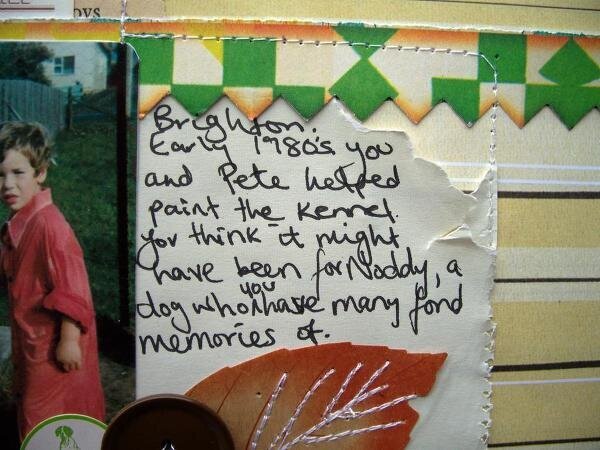 oys
Brighton.
Early 1980's you
and Pete helped
paint the kennel.
You think it might
have been for Noddy, a
dog who you have many fond
memories of.